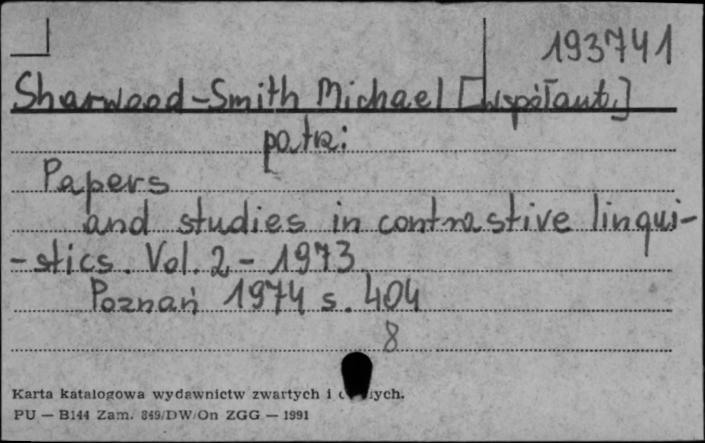 193741
Sharwood-Smith Michael [współaut.]
patrz:
Papers
and studies in contrastive lingui-
-stics. Vol. 2 - 1973
Poznań 1974 s. 404
8
Karta katalogowa wydawnictw zwartych i
PU — B144 Zam. 849/DW/On ZGG — 1991